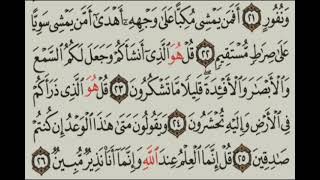 وَنُفُورٍ ﴿٢١﴾ أَفَمَن يَمْشِى مُكِبًّا عَلَىٰ وَجْهِهِۦٓ أَهْدَىٰٓ أَمَّن يَمْشِى سَوِيًّا
عَلَىٰ صِرَٰطٍ مُّسْتَقِيمٍ ﴿٢٢﴾ قُلْ هُوَ ٱلَّذِىٓ أَنشَأَكُمْ وَجَعَلَ لَكُمُ ٱلسَّمْعَ
وَٱلْأَبْصَٰرَ وَٱلْأَفْـِٔدَةَ قَلِيلًا مَّا تَشْكُرُونَ ﴿٢٣﴾ قُلْ هُوَ ٱلَّذِى ذَرَأَكُمْ
فِى ٱلْأَرْضِ وَإِلَيْهِ تُحْشَرُونَ ﴿٢٤﴾ وَيَقُولُونَ مَتَىٰ هَٰذَا ٱلْوَعْدُ إِن كُنتُمْ
صَٰدِقِينَ ﴿٢٥﴾ قُلْ إِنَّمَا ٱلْعِلْمُ عِندَ ٱللَّهِ وَإِنَّمَآ أَنَا۠ نَذِيرٌ مُّبِينٌ ﴿٢٦﴾